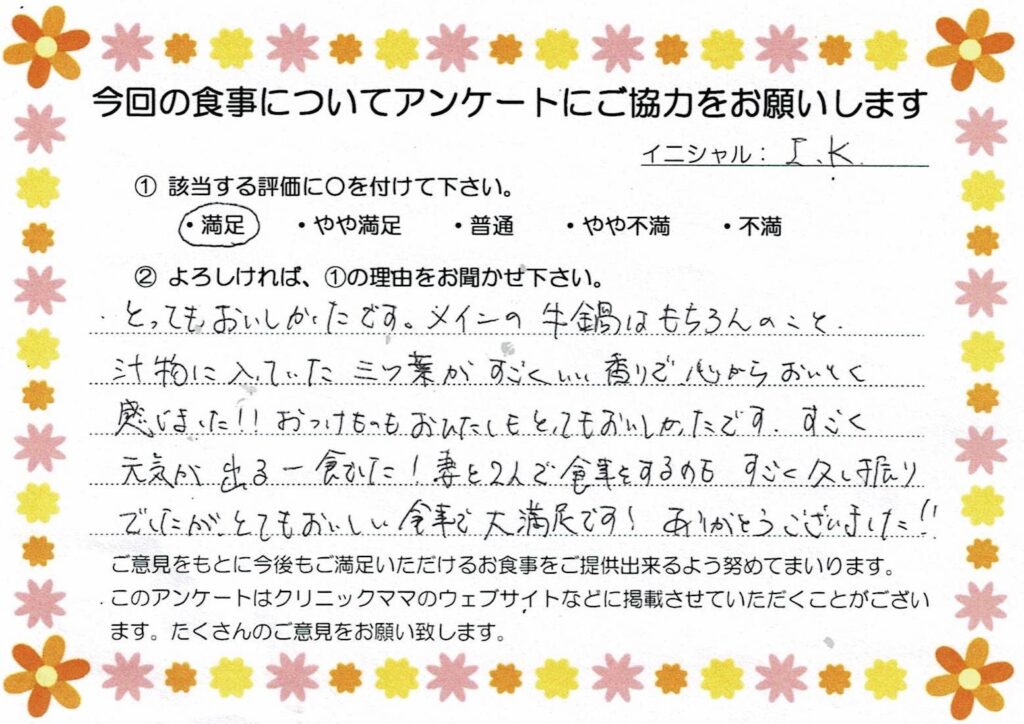 今回の食事についてアンケートにご協力をお願いします
イニシャル： I.K.
① 該当する評価に〇を付けて下さい。
・満足 ・やや満足 ・普通 ・やや不満 ・不満
② よろしければ、①の理由をお聞かせ下さい。
とってもおいしかったです。メインの牛鍋はもちろんのこと、
汁物に入っていた三つ葉がすごくいい香りで心からおいしく
感じました!! おつけものもおひたしもとってもおいしかったです。すごく
元気が出る一食でした! 妻と2人で食事をするのもすごく久し振り
でしたが、とてもおいしい食事で大満足です! ありがとうございました!!
ご意見をもとに今後もご満足いただけるお食事をご提供出来るよう努めてまいります。
このアンケートはクリニックママのウェブサイトなどに掲載させていただくことがござい
ます。たくさんのご意見をお願い致します。